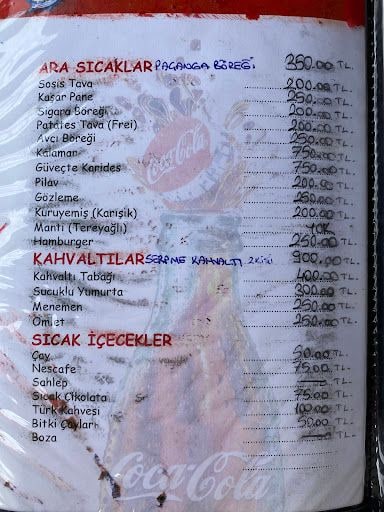 ARA SICAKLAR PAÇANGA BÖREĞİ 350.00 TL.
Sosis Tava 200.00 TL.
Kaşar Pane 250.00 TL.
Sigara Böreği 200.00 TL.
Patates Tava (Frei) 200.00 TL.
Avcı Böreği 250.00 TL.
Kalamar 750.00 TL.
Güveçte Karides 750.00 TL.
Pilav 200.00 TL.
Gözleme 250.00 TL.
Kuruyemiş (Karışık) 200.00 TL.
Mantı (Tereyağlı) TL.
Hamburger 250.00 TL.
KAHVALTILAR SERPME KAHVALTI 2 KİŞİ 900.00 TL.
Kahvaltı Tabağı 400.00 TL.
Sucuklu Yumurta 300.00 TL.
Menemen 250.00 TL.
Omlet 250.00 TL.
SICAK İÇECEKLER
Çay 50.00 TL.
Nescafe 75.00 TL.
Sahlep TL.
Sıcak Çikolata 75.00 TL.
Türk Kahvesi 100.00 TL.
Bitki Çayları 50.00 TL.
Boza TL.
Coca-Cola
Coca-Cola